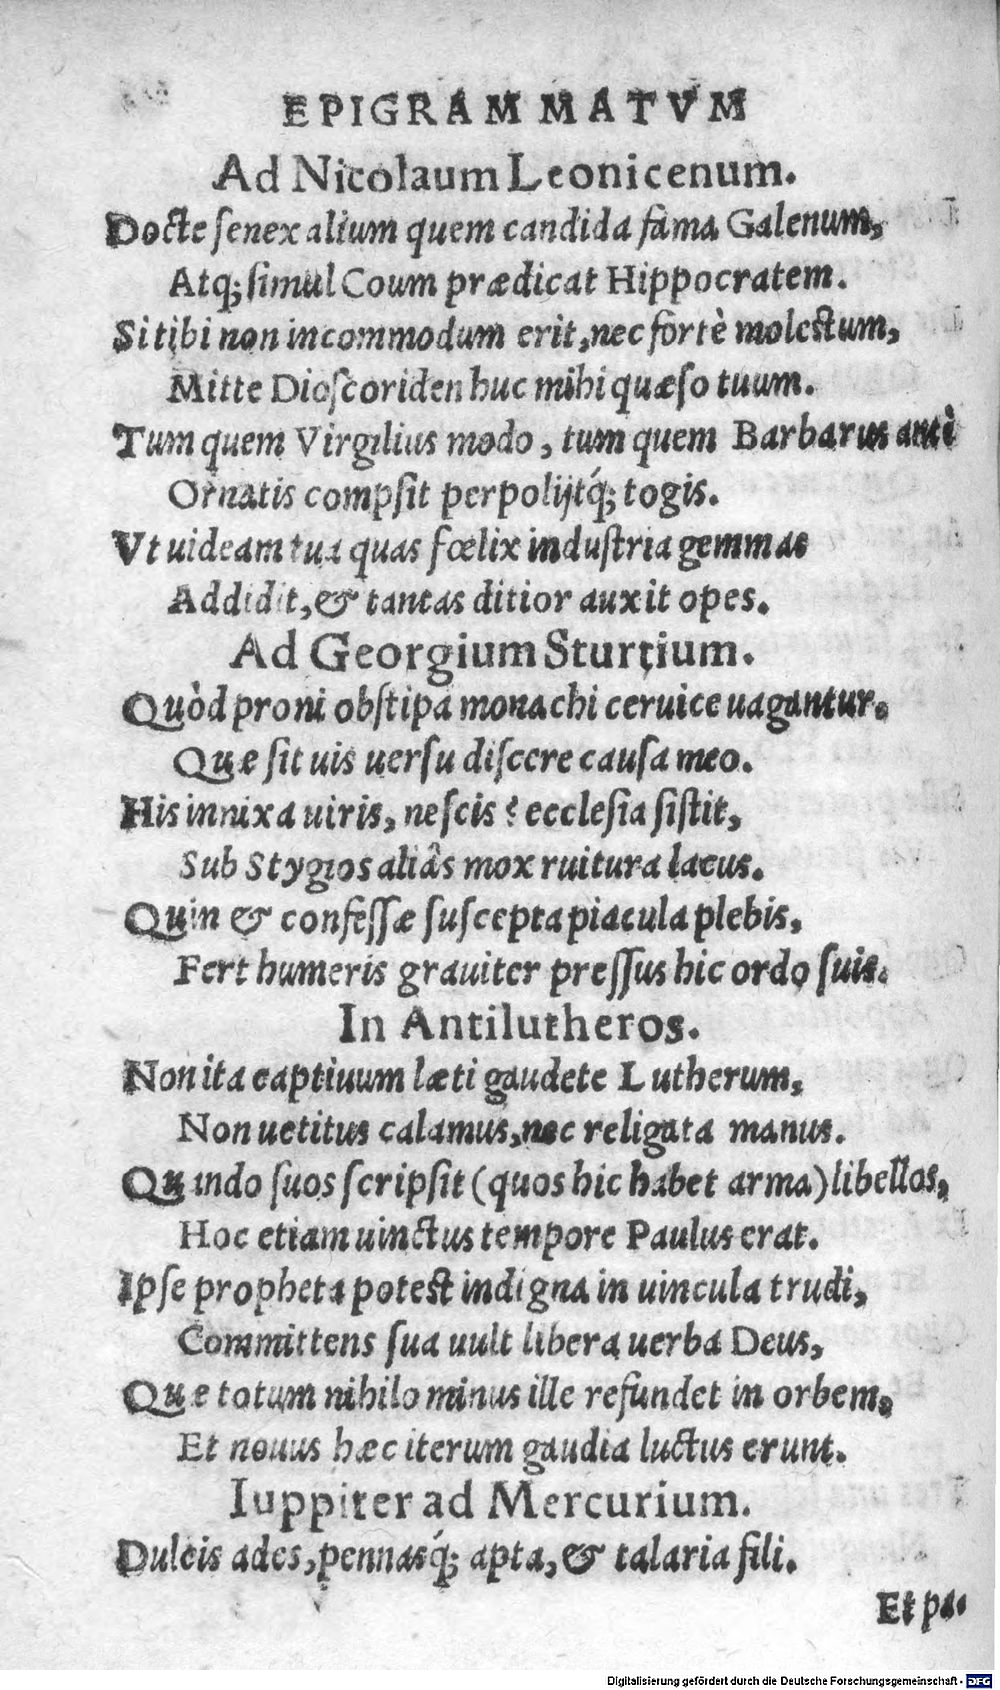 EPIGRAMMATVM
Ad Nicolaum Leonicenum.
Docte ſenex alium quem candida fama Galenum,
Atq; ſimul Coum prædicat Hippocratem.
Si tibi non incommodum erit, nec fortè moleſtum,
Mitte Dioſcoriden huc mihi quæſo tuum.
Tum quem Virgilius modo, tum quem Barbarus antè
Ornatis compſit perpolijtq́; togis.
Vt uideam tua quas fœlix induſtria gemmas
Addidit, & tantas ditior auxit opes.
Ad Georgium Sturtium.
Quòd proni obſtipa monachi ceruice uagantur.
Quæ ſit uis uerſu diſcere cauſa meo.
His innixa uiris, neſcis? eccleſia ſiſtit,
Sub Stygios aliâs mox ruitura lacus.
Quin & confeſſæ ſuſcepta piacula plebis,
Fert humeris grauiter preſſus hic ordo ſuis.
In Antilutheros.
Non ita captiuum læti gaudete Lutherum,
Non uetitus calamus, nec religata manus.
Quando ſuos ſcripſit (quos hic habet arma) libellos,
Hoc etiam uinctus tempore Paulus erat.
Ipſe propheta poteſt indigna in uincula trudi,
Committens ſua uult libera uerba Deus,
Quæ totum nihilo minus ille refundet in orbem.
Et nouus hæc iterum gaudia luctus erunt.
Iuppiter ad Mercurium.
Dulcis ades, pennasq́; apta, & talaria fili.
Et pa-
Digitalisierung gefördert durch die Deutsche Forschungsgemeinschaft - DFG